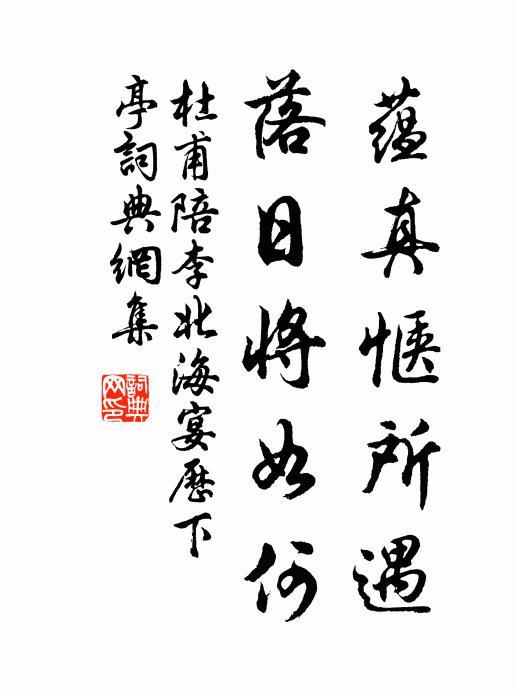 蕴真惬所遇
落日将如何
杜甫陪李北海宴歷下
亭詞典網集
詞典
网印